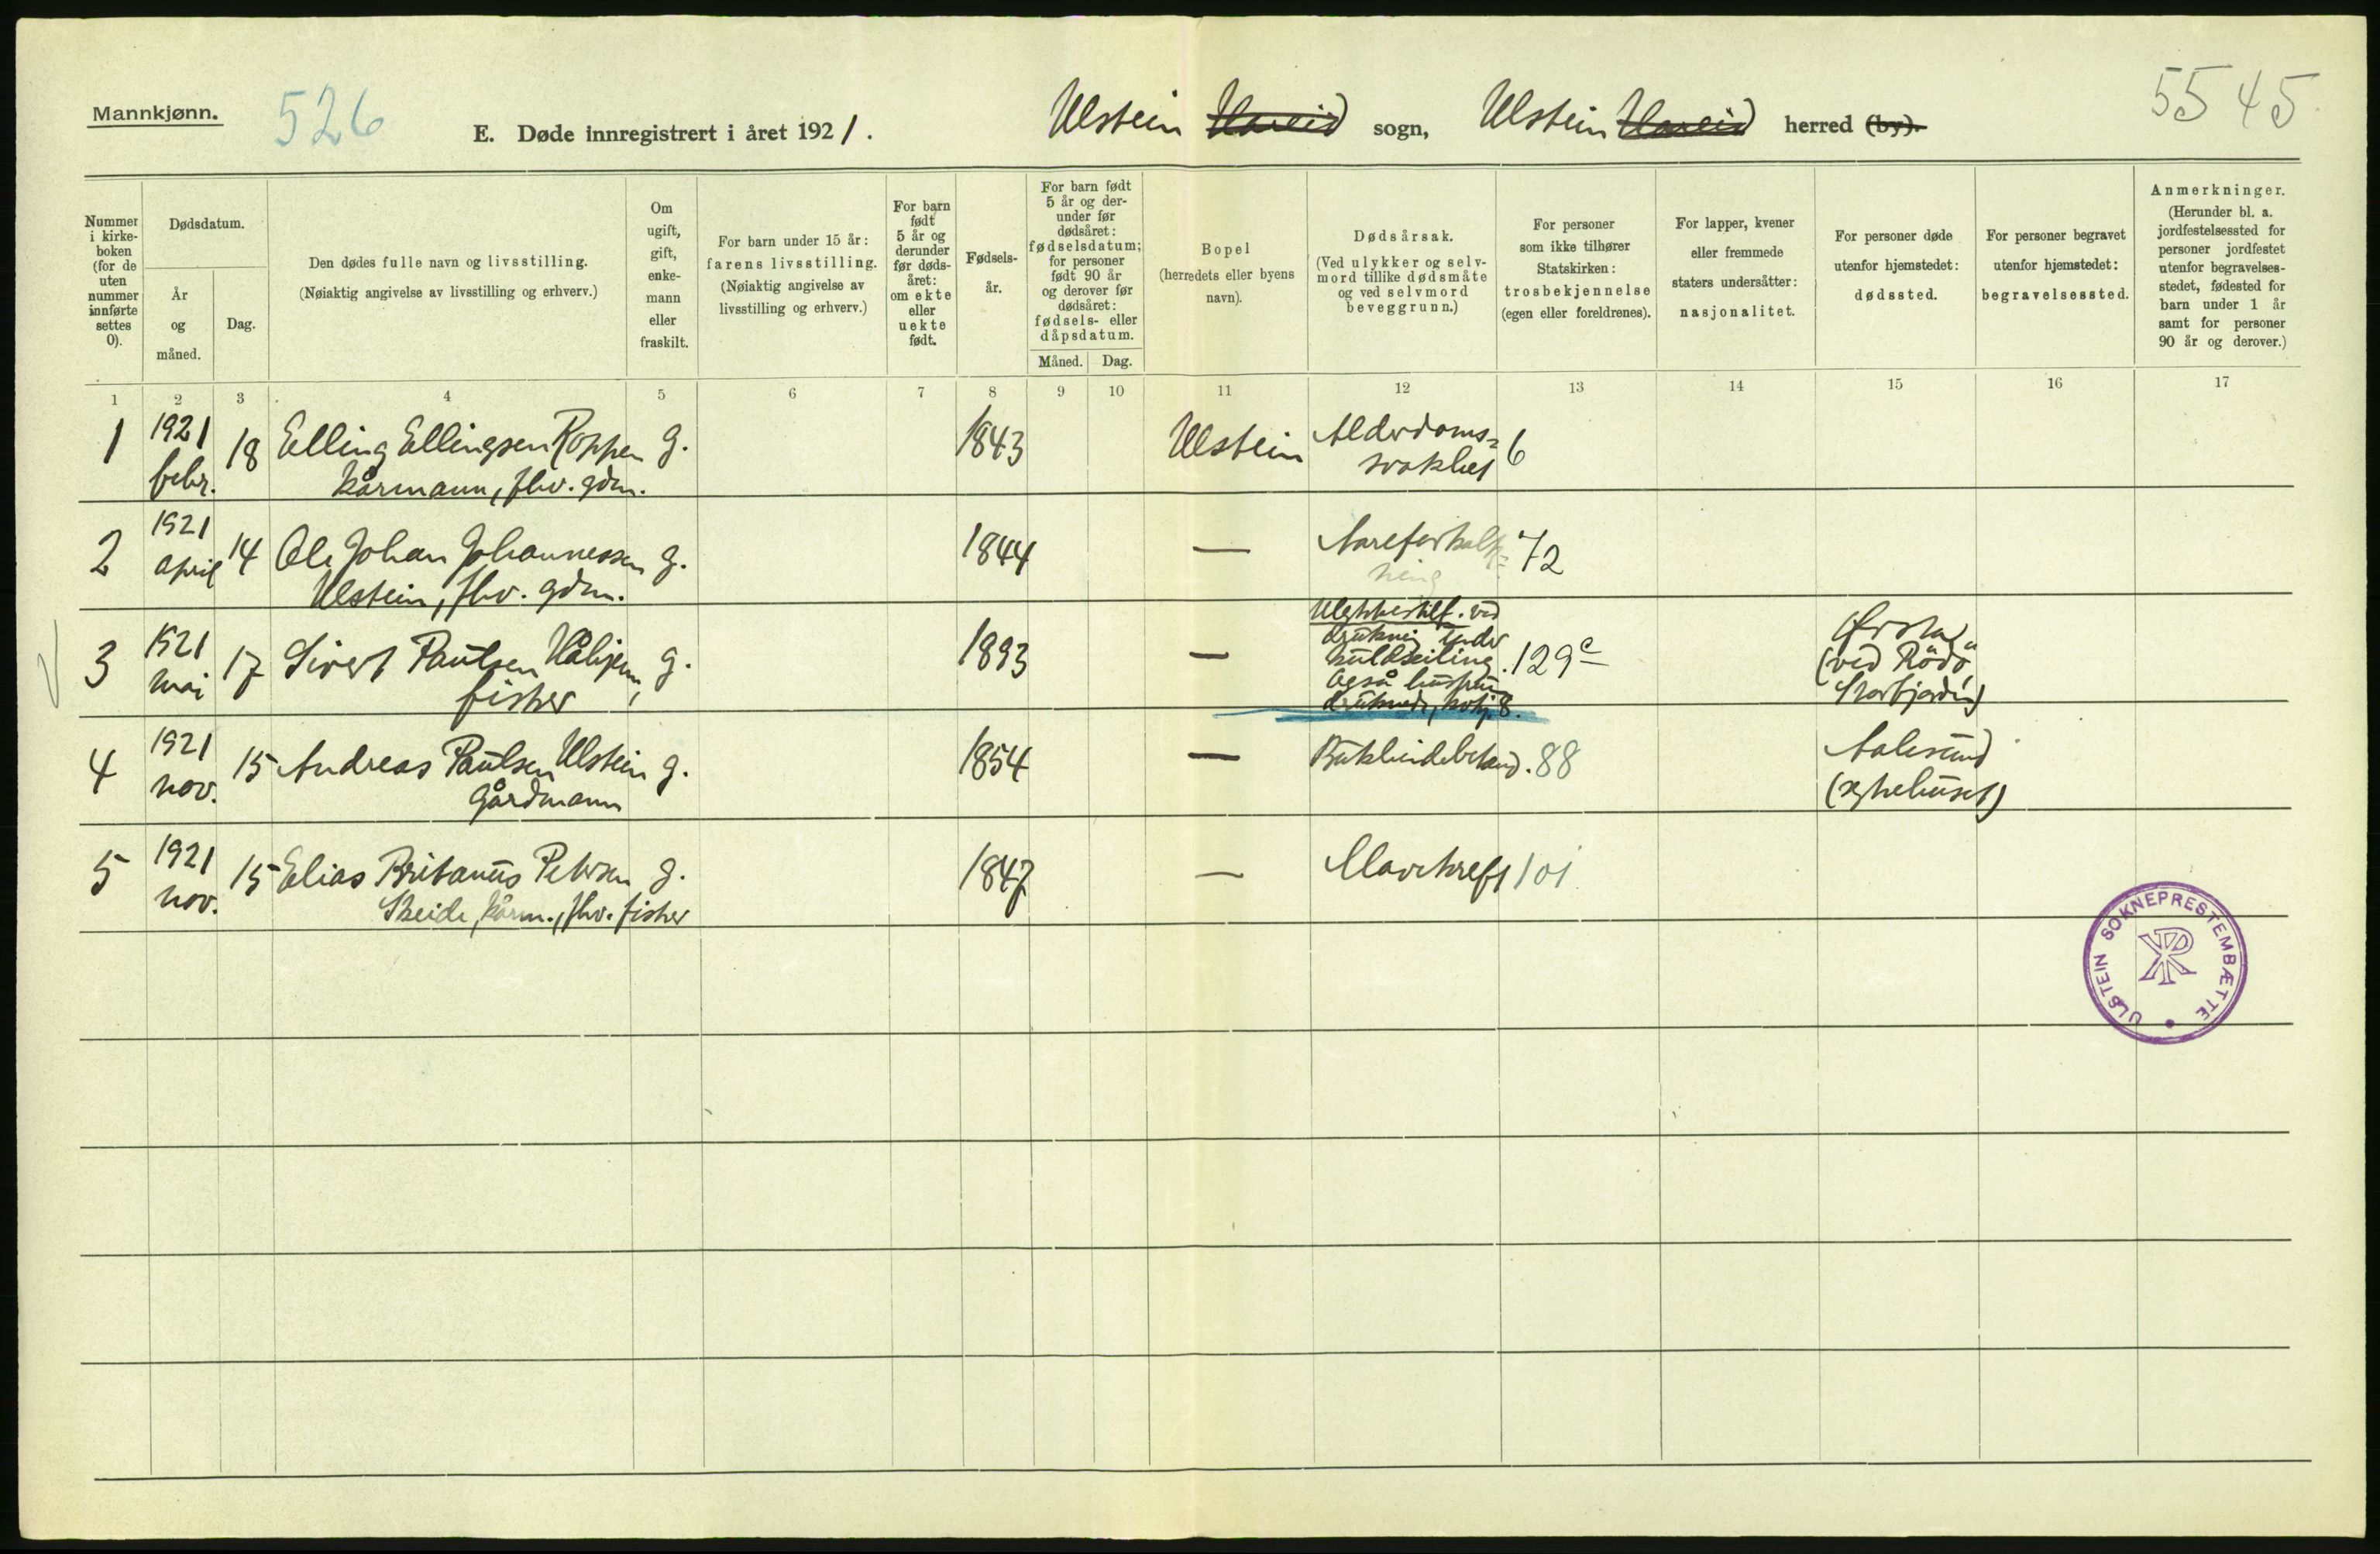 Mannkjønn.
526
E. Døde innregistrert i året 1921.
Ulstein Hareid sogn, Ulstein Hareid herred (by).
5545
Nummer i kirke-boken (for de uten nummer innførte settes 0).
Dødsdatum.
År og måned.
Dag.
Den dødes fulle navn og livsstilling.
(Nøiaktig angivelse av livsstilling og erhverv.)
Om ugift, gift, enke-mann eller fraskilt.
For barn under 15 år: farens livsstilling.
(Nøiaktig angivelse av livsstilling og erhverv.)
For barn født 5 år og derunder før døds-året: om ekte eller uekte født.
Fødsels-år.
For barn født 5 år og der-under før dødsåret: fødselsdatum; for personer født 90 år og derover før dødsåret: fødsels- eller dåpsdatum.
Måned.
Dag.
Bopel
(herredets eller byens navn).
Dødsårsak.
(Ved ulykker og selv-mord tillike dødsmåte og ved selvmord beveggrunn.)
For personer som ikke tilhører Statskirken: trosbekjennelse (egen eller foreldrenes).
For lapper, kvener eller fremmede staters undersåtter: nasjonalitet.
For personer døde utenfor hjemstedet: dødssted.
For personer begravet utenfor hjemstedet: begravelsessted.
Anmerkninger.
(Herunder bl. a. jordfestelsessted for personer jordfestet utenfor begravelses-stedet, fødested for barn under 1 år samt for personer 90 år og derover.)
1 2 3 4 5 6 7 8 9 10 11 12 13 14 15 16 17
1 1921 febr. 18 Elling Ellingsen Roppen g. 1843 Ulstein Alderdoms-svakhet 6
kårmann, fhv. gdm.
2 1921 april 14 Ole Johan Johannessen g. 1844 — Aareforkalk-ning 72
Ulstein, fhv. gdm.
3 1921 mai 17 Sivert Paulsen Håhjem, g. 1893 — Ulykkestilf. ved
drukning under
kulseiling.
Også hustru
druknede, kvkj. 8.
129c
Ørsta
(ved "Rödö"
Storfjorden)
fisker
4 1921 nov. 15 Andreas Paulsen Ulstein g. 1854 — Bukhindebetænd. 88 Aalesund
(sykehuset)
gårdmann
5 1921 nov. 15 Elias Britanus Petersen g. 1847 — Mavekreft 101
Skeide, kårm., fhv. fisker
ULSTEIN SOKNEPRESTEMBÆTTE